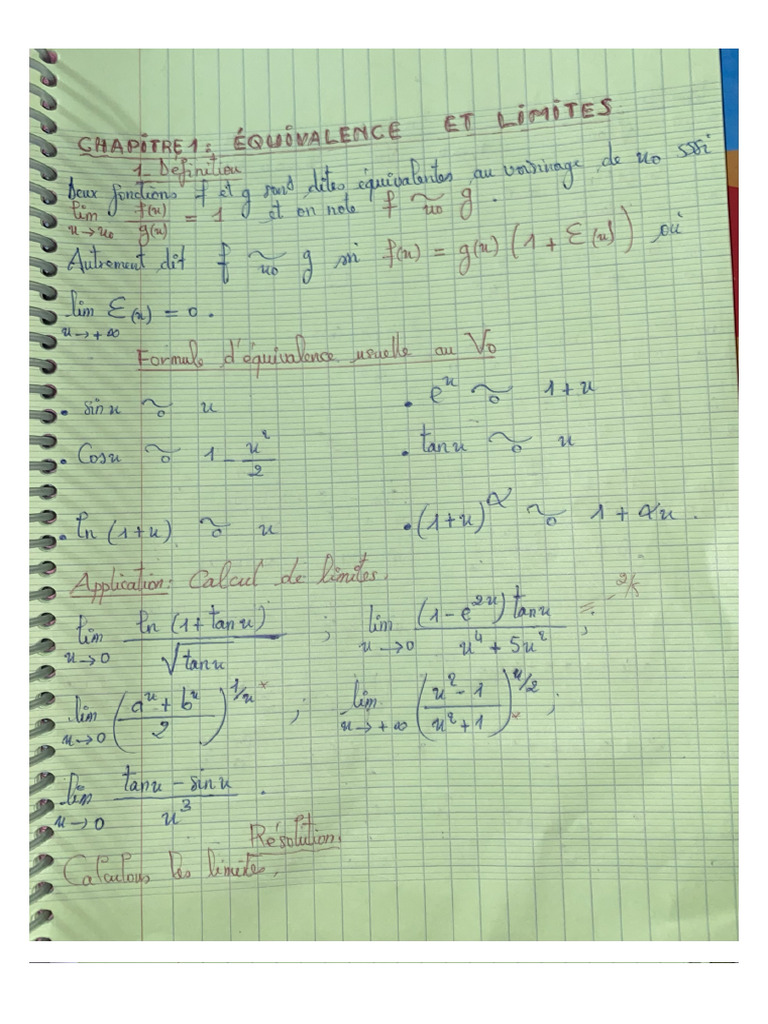 CHAPITRE 1 : ÉQUIVALENCE ET LIMITES
1_ Définition
Deux fonctions f et g sont dites équivalentes au voisinage de x₀ ssi
lim_{x→x₀} f(x)/g(x) = 1 et on note f ~_{x₀} g.
Autrement dit f ~_{x₀} g si f(x) = g(x)(1 + Ɛ(x)) où
lim_{x→+∞} Ɛ(x) = 0.
Formule d'équivalence usuelle au V₀
• sinx ~₀ x • eˣ ~₀ 1+x
• Cosx ~₀ 1 - x²/2 • tanx ~₀ x
• ln(1+x) ~₀ x • (1+x)^α ~₀ 1 + αx.
Application : Calcul de limites.
lim_{x→0} ln(1+tanx)/√tanx ; lim_{x→0} (1-e^{2x})tanx/(x⁴+5x²) ; = -2/5
lim_{x→0} ((aˣ+bˣ)/2)^{1/x} * ; lim_{x→+∞} ((x²-1)/(x²+1))^{x/2} * ;
lim_{x→0} (tanx - sinx)/x³.
Résolution.
Calculons les limites.